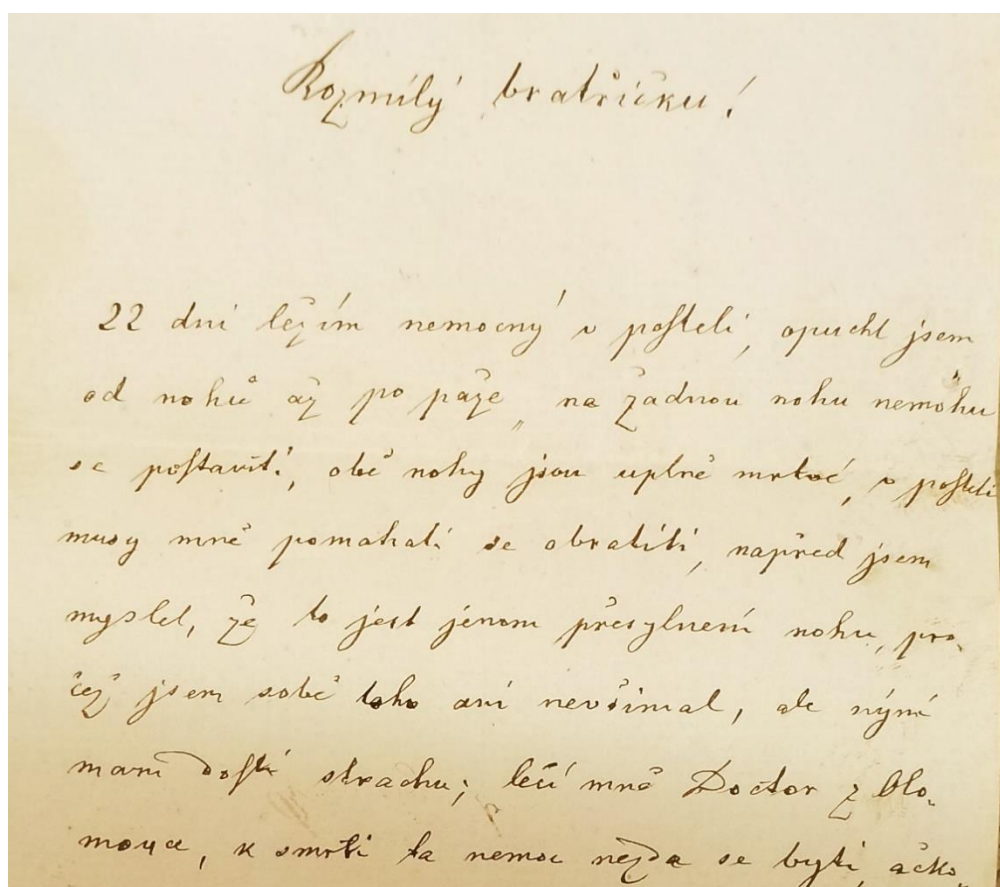 Rozmilý bratřičku!
22 dni ležím nemocný v posteli, opuchl jsem
od nohů až po paže, na žadnou nohu nemohu
se postaviti, obě nohy jsou uplně mrtvé, v posteli
musy mně pomahati se obratiti, napřed jsem
myslel, že to jest jenom přesylneni nohu, pro-
čež jsem sobě toho ani nevšimal, ale nýní
mam dosti strachu; lečí mně Doctor z Olo-
mouce, k smrti ta nemoc nezda se byti, ačko-